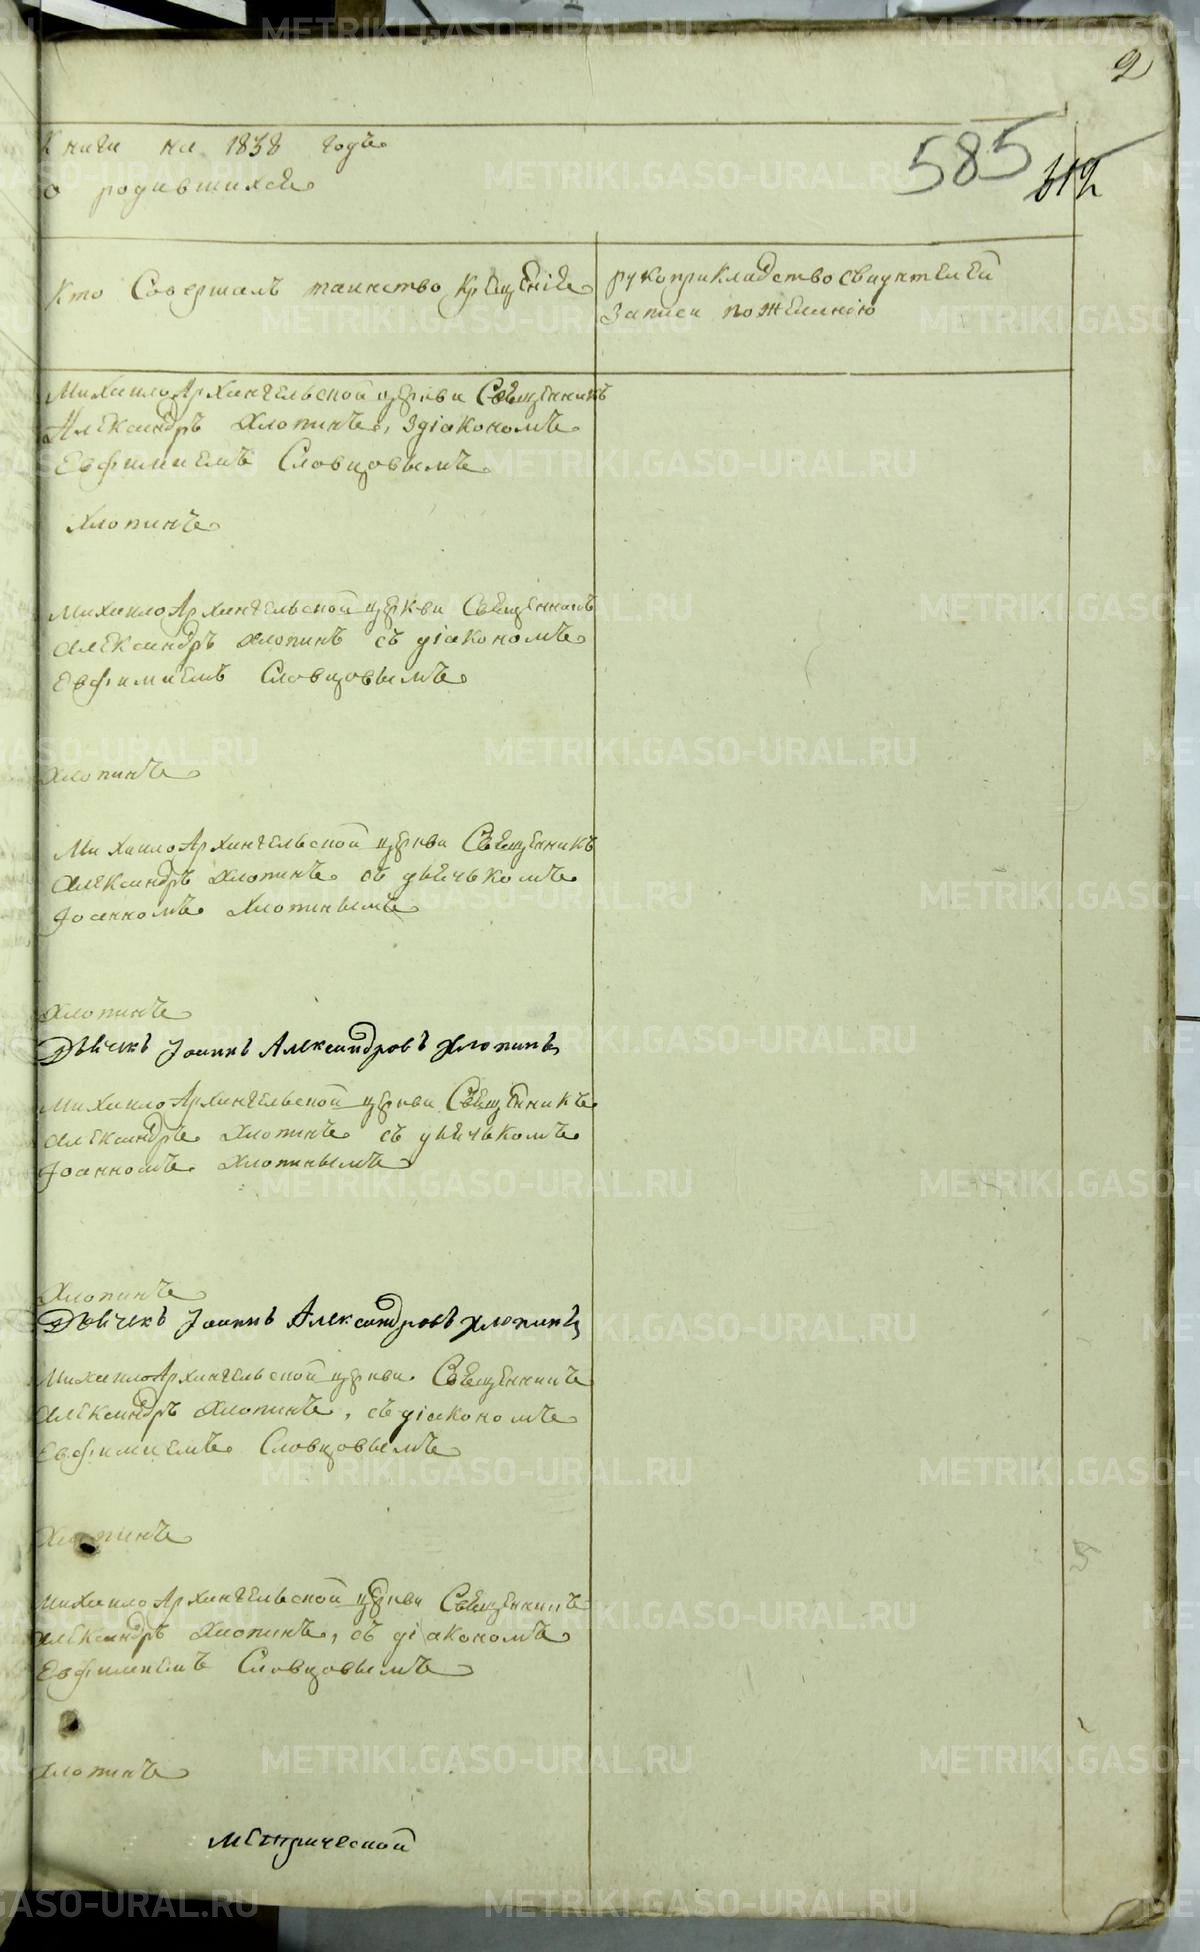 2
Книги на 1838 годъ
о родившихся
585
312
Кто Совершалъ таинство крещенія
рукоприкладство свидѣтелей
записи по желанію
Михаило Архангельской церкви Священникъ
Александръ Хлопинъ, з діакономъ
Евфимиемъ Словцовымъ
Хлопинъ
Михаило Архангельской церкви Священникъ
Александръ Хлопинъ съ діакономъ
Евфимиемъ Словцовымъ
Хлопинъ
Михаило Архангельской церкви Священникъ
Александръ Хлопинъ съ дьячькомъ
Іоанномъ Хлопинымъ
Хлопинъ
Дьячекъ Іоаннъ Александровъ Хлопинъ
Михаило Архангельской церкви Священникъ
Александръ Хлопинъ съ дьячькомъ
Іоанномъ Хлопинымъ
Хлопинъ
Дьячекъ Іоаннъ Александровъ Хлопинъ
Михаило Архангельской церкви Священникъ
Александръ Хлопинъ, съ діакономъ
Евфимиемъ Словцовымъ
Хлопинъ
Михаило Архангельской церкви Священникъ
Александръ Хлопинъ, съ діакономъ
Евфимиемъ Словцовымъ
Хлопинъ
Метрической
METRIKI.GASO-URAL.RU